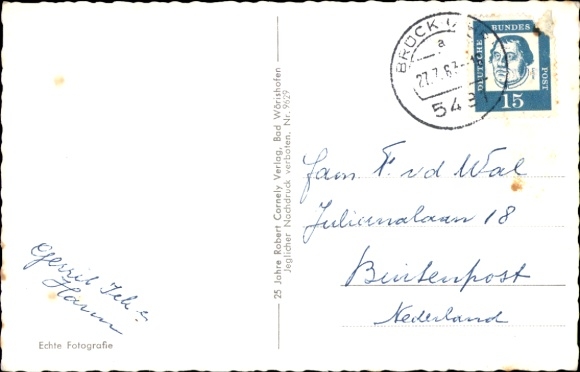 BRÜCK
a
27.7.63
548
DEUTSCHE BUNDES POST
15
Fam F. v d Wal
Julianalaan 18
Buitenpost
Nederland
25 Jahre Robert Cornely Verlag, Bad Wörishofen
Jeglicher Nachdruck verboten. Nr. 9629
Gerrit
Harm
Echte Fotografie